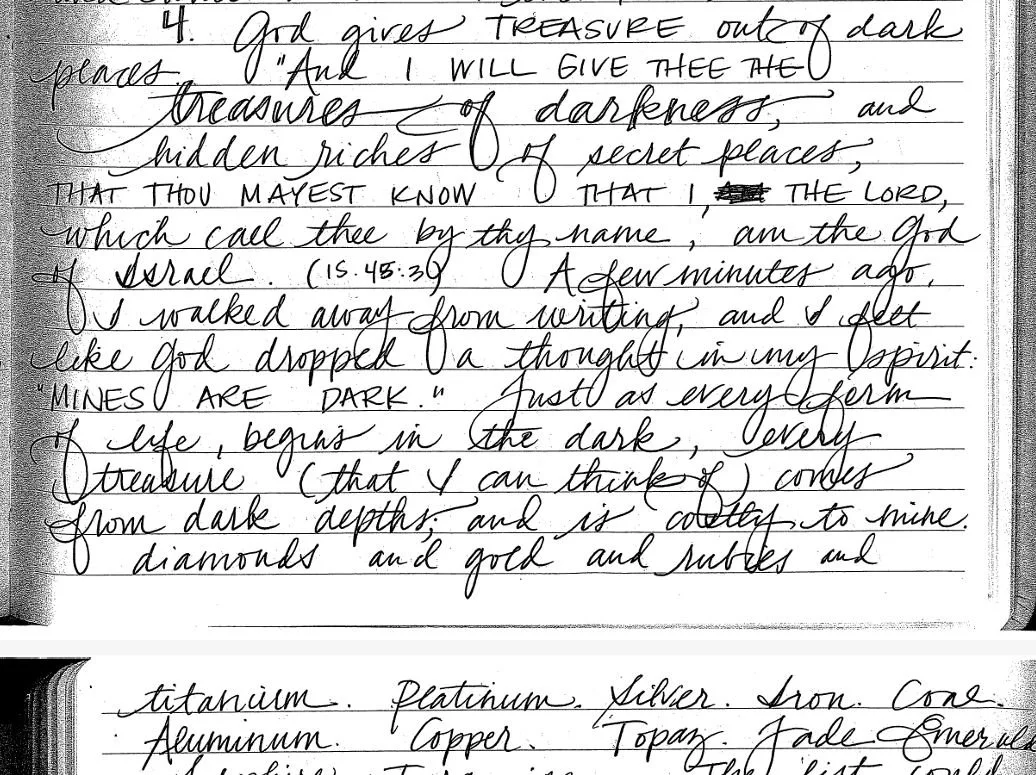 4. God gives TREASURE out of dark
places. "And I WILL GIVE THEE THE
treasures of darkness, and
hidden riches of secret places,
THAT THOU MAYEST KNOW THAT I, THE LORD,
which call thee by thy name, am the God
of Israel. (IS. 45:3) A few minutes ago,
I walked away from writing, and I felt
like God dropped a thought in my spirit:
"MINES ARE DARK." Just as every form
of life, begins in the dark, every
treasure (that I can think of) comes
from dark depths, and is costly to mine.
diamonds and gold and rubies and
titanium. Platinum. Silver. Iron. Coal.
Aluminum. Copper. Topaz. Jade
The list could